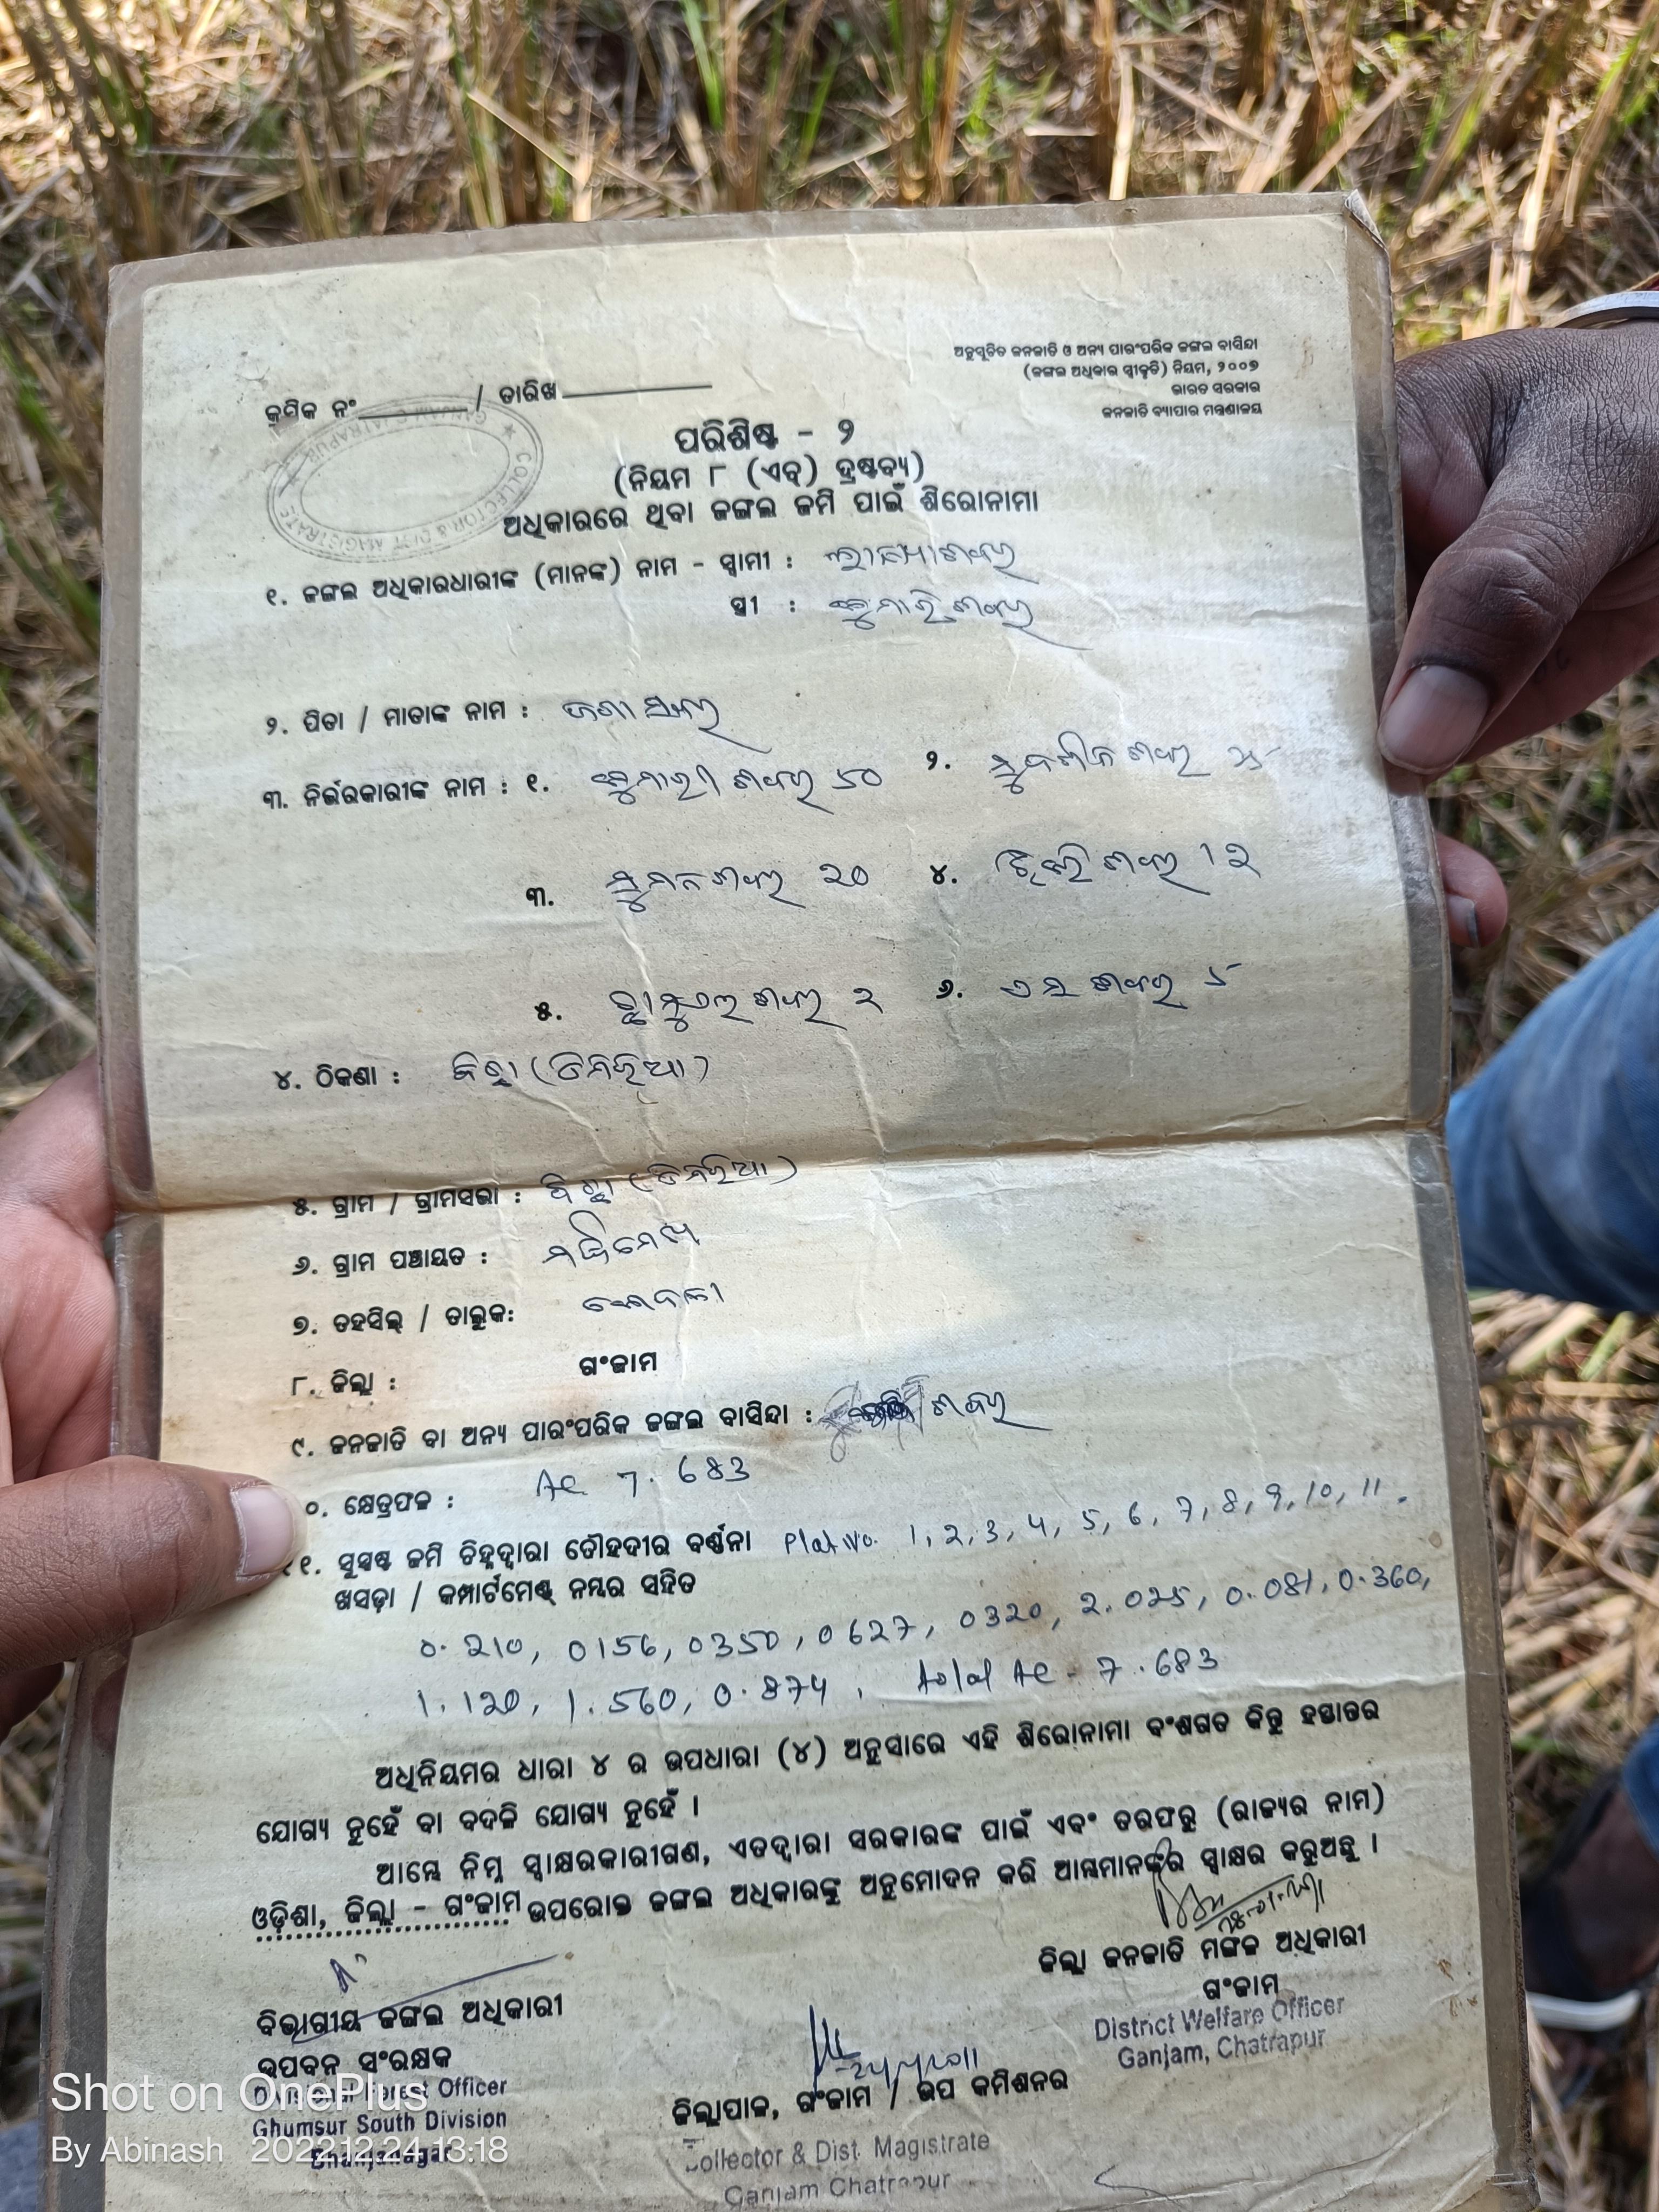 ଅନୁସୂଚିତ ଜନଜାତି ଓ ଅନ୍ୟ ପାରଂପରିକ ଜଙ୍ଗଲ ବାସିନ୍ଦା
(ଜଙ୍ଗଲ ଅଧିକାର ସ୍ୱୀକୃତି) ନିୟମ, ୨୦୦୭
ଭାରତ ସରକାର
ଜନଜାତି ବ୍ୟାପାର ମନ୍ତ୍ରଣାଳୟ
କ୍ରମିକ ନଂ / ତାରିଖ
COLLECTOR & DIST MAGISTRATE
ପରିଶିଷ୍ଟ - ୨
(ନିୟମ ୮ (ଏଚ୍) ଦ୍ରଷ୍ଟବ୍ୟ)
ଅଧିକାରରେ ଥିବା ଜଙ୍ଗଲ ଜମି ପାଇଁ ଶିରୋନାମା
୧. ଜଙ୍ଗଲ ଅଧିକାରଧାରୀଙ୍କ (ମାନଙ୍କ) ନାମ - ସ୍ୱାମୀ :
ସ୍ତ୍ରୀ : ଶବର
୨. ପିତା / ମାତାଙ୍କ ନାମ :
୩. ନିର୍ଭରକାରୀଙ୍କ ନାମ : ୧. ଶବର ୨. ଶବର
୩. ଶବର 20 ୪. ଶବର 12
୫. ଶବର 2 ୬. ଶବର
୪. ଠିକଣା :
୫. ଗ୍ରାମ / ଗ୍ରାମସଭା :
୬. ଗ୍ରାମ ପଞ୍ଚାୟତ :
୭. ତହସିଲ୍ / ତାଲୁକ:
୮. ଜିଲ୍ଲା : ଗଂଜାମ
୯. ଜନଜାତି ବା ଅନ୍ୟ ପାରଂପରିକ ଜଙ୍ଗଲ ବାସିନ୍ଦା : ଶବର
୦. କ୍ଷେତ୍ରଫଳ : Ac 7.683
୧୧. ସୁସ୍ପଷ୍ଟ ଜମି ଚିହ୍ନଦ୍ୱାରା ଚୌହଦୀର ବର୍ଣ୍ଣନା Plot No. 1, 2, 3, 4, 5, 6, 7, 8, 9, 10, 11.
ଖସଡ଼ା / କମ୍ପାର୍ଟମେଣ୍ଟ୍ ନମ୍ବର ସହିତ
0.210, 0156, 0350, 0627, 0320, 2.025, 0.081, 0.360,
1.120, 1.560, 0.874, Total Ac - 7.683
ଅଧିନିୟମର ଧାରା ୪ ର ଉପଧାରା (୪) ଅନୁସାରେ ଏହି ଶିରୋନାମା ବଂଶଗତ କିନ୍ତୁ ହସ୍ତାନ୍ତର
ଯୋଗ୍ୟ ନୁହେଁ ବା ବଦଳି ଯୋଗ୍ୟ ନୁହେଁ ।
ଆମ୍ଭେ ନିମ୍ନ ସ୍ୱାକ୍ଷରକାରୀଗଣ, ଏତଦ୍ୱାରା ସରକାରଙ୍କ ପାଇଁ ଏବଂ ତରଫରୁ (ରାଜ୍ୟର ନାମ)
ଓଡ଼ିଶା, ଜିଲ୍ଲା - ଗଂଜାମ ଉପରୋକ୍ତ ଜଙ୍ଗଲ ଅଧିକାରଙ୍କୁ ଅନୁମୋଦନ କରି ଆମ୍ଭମାନଙ୍କର ସ୍ୱାକ୍ଷର କରୁଅଛୁ ।
ଜିଲ୍ଲା ଜନଜାତି ମଙ୍ଗଳ ଅଧିକାରୀ
ଗଂଜାମ
District Welfare Officer
Ganjam, Chatrapur
ବିଭାଗୀୟ ଜଙ୍ଗଲ ଅଧିକାରୀ
ଉପବନ ସଂରକ୍ଷକ
Divisional Forest Officer
Ghumsur South Division
Bhanjanagar
ଜିଲ୍ଲାପାଳ, ଗଂଜାମ / ଉପ କମିଶନର
Collector & Dist. Magistrate
Ganjam Chatrapur
Shot on OnePlus
By Abinash 2022.12.24 13:18